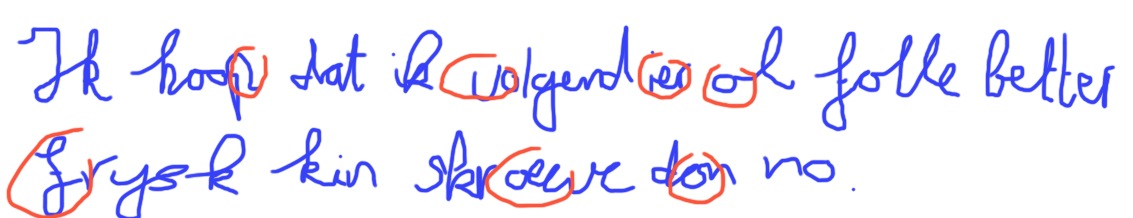 Ik hoop dat ik volgend ier ok folle better
Frysk kin skroeuve don no.